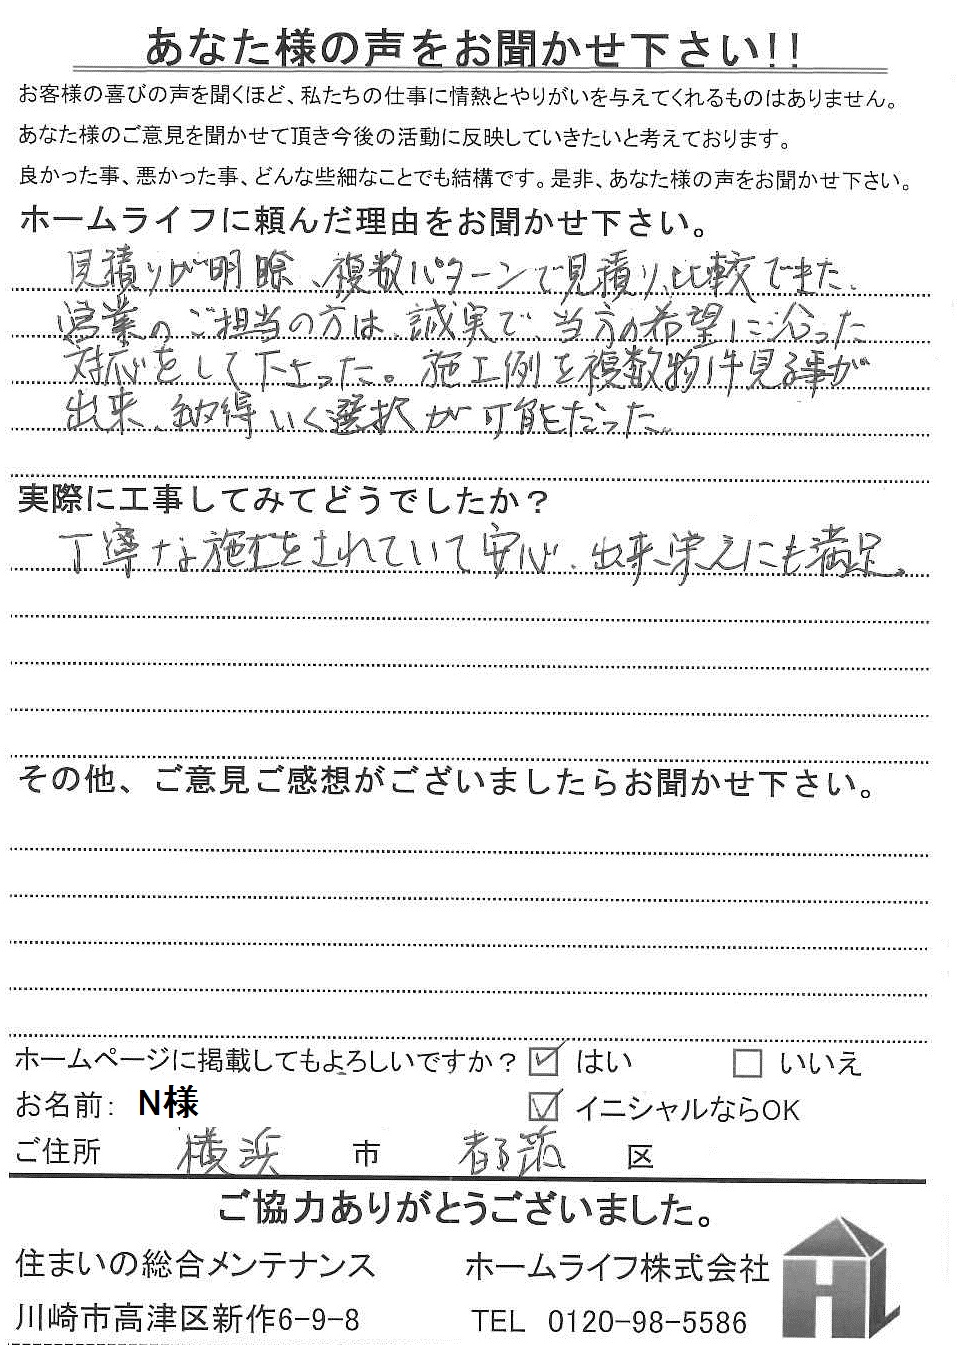 あなた様の声をお聞かせ下さい!!
お客様の喜びの声を聞くほど、私たちの仕事に情熱とやりがいを与えてくれるものはありません。
あなた様のご意見を聞かせて頂き今後の活動に反映していきたいと考えております。
良かった事、悪かった事、どんな些細なことでも結構です。是非、あなた様の声をお聞かせ下さい。
ホームライフに頼んだ理由をお聞かせ下さい。
見積りが明瞭、複数パターンで見積り、比較できた。
営業のご担当の方は、誠実で、当方の希望に沿った
対応をして下さった。施工例を複数物件見る事が
出来、納得いく選択が可能だった。
実際に工事してみてどうでしたか？
丁寧な施工をされていて安心、出来栄えにも満足。
その他、ご意見ご感想がございましたらお聞かせ下さい。
ホームページに掲載してもよろしいですか？ ☑ はい □ いいえ
お名前： N様 ☑ イニシャルならOK
ご住所 横浜 市 都筑 区
ご協力ありがとうございました。
住まいの総合メンテナンス ホームライフ株式会社
川崎市高津区新作6-9-8 TEL 0120-98-5586
HL